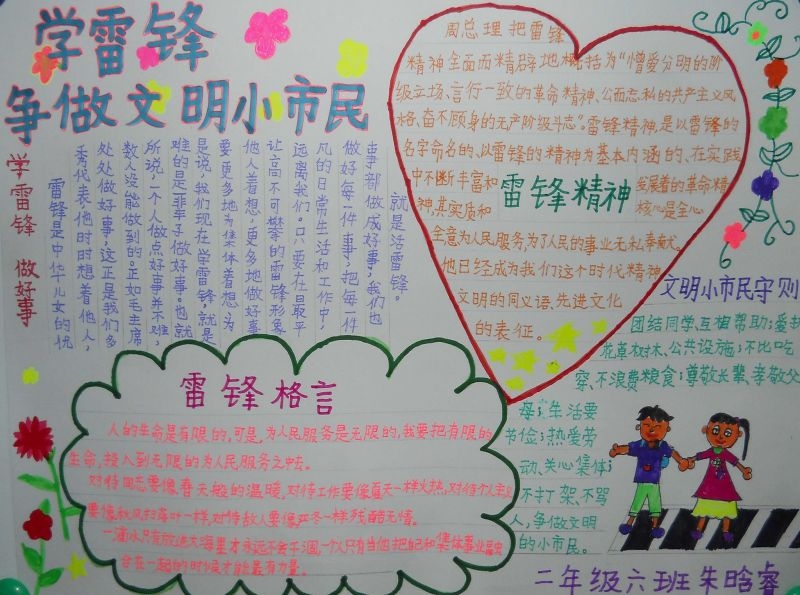 学雷锋
争做文明小市民
学雷锋 做好事
雷锋是中华儿女的优
秀代表他时时想着他人，
处处做好事，这正是我们多
数人没能做到的。正如毛主席
所说一个人做点好事并不难，
难的是一辈子做好事。也就
是说，我们现在学雷锋，就是
要更多地为集体着想，为
他人着想，更多地做好事
让高不可攀的雷锋形象
远离我们。只要在日最平
风的日常生活和工作中，
做好每一件事，把每一件
事都做成好事，我们也
就是活雷锋。
周总理把雷锋
精神全面而精辟地概括为“憎爱分明的阶
级立场、言行一致的革命精神、公而忘私的共产主义风
格、奋不顾身的无产阶级斗志”。雷锋精神，是以雷锋的
名字命名的、以雷锋的精神为基本内涵的、在实践
中不断丰富和发展着的革命精
雷锋精神
神，其实质和核心是全心
全意为人民服务，为了人民的事业无私奉献。
他已经成为我们这个时代精神
文明的同义语、先进文化
的表征。
雷锋格言
人的生命是有限的，可是，为人民服务是无限的，我要把有限的
生命，投入到无限的为人民服务之中去。
对待同志要像春天般的温暖，对待工作要像夏天一样火热，对待个人主义
要像秋风扫落叶一样，对待敌人要像严冬一样残酷无情。
一滴水只有放进大海里才永远不会干涸，一个人只有当他把自己和集体事业融
合在一起的时候才能最有力量。
文明小市民守则
团结同学、互相帮助；爱护
花草树木、公共设施；不比吃
穿、不浪费粮食；尊敬长辈、孝敬父
母；生活要
节俭；热爱劳
动、关心集体；
不打架、不骂
人，争做文明
的小市民。
二年级六班 朱晗睿